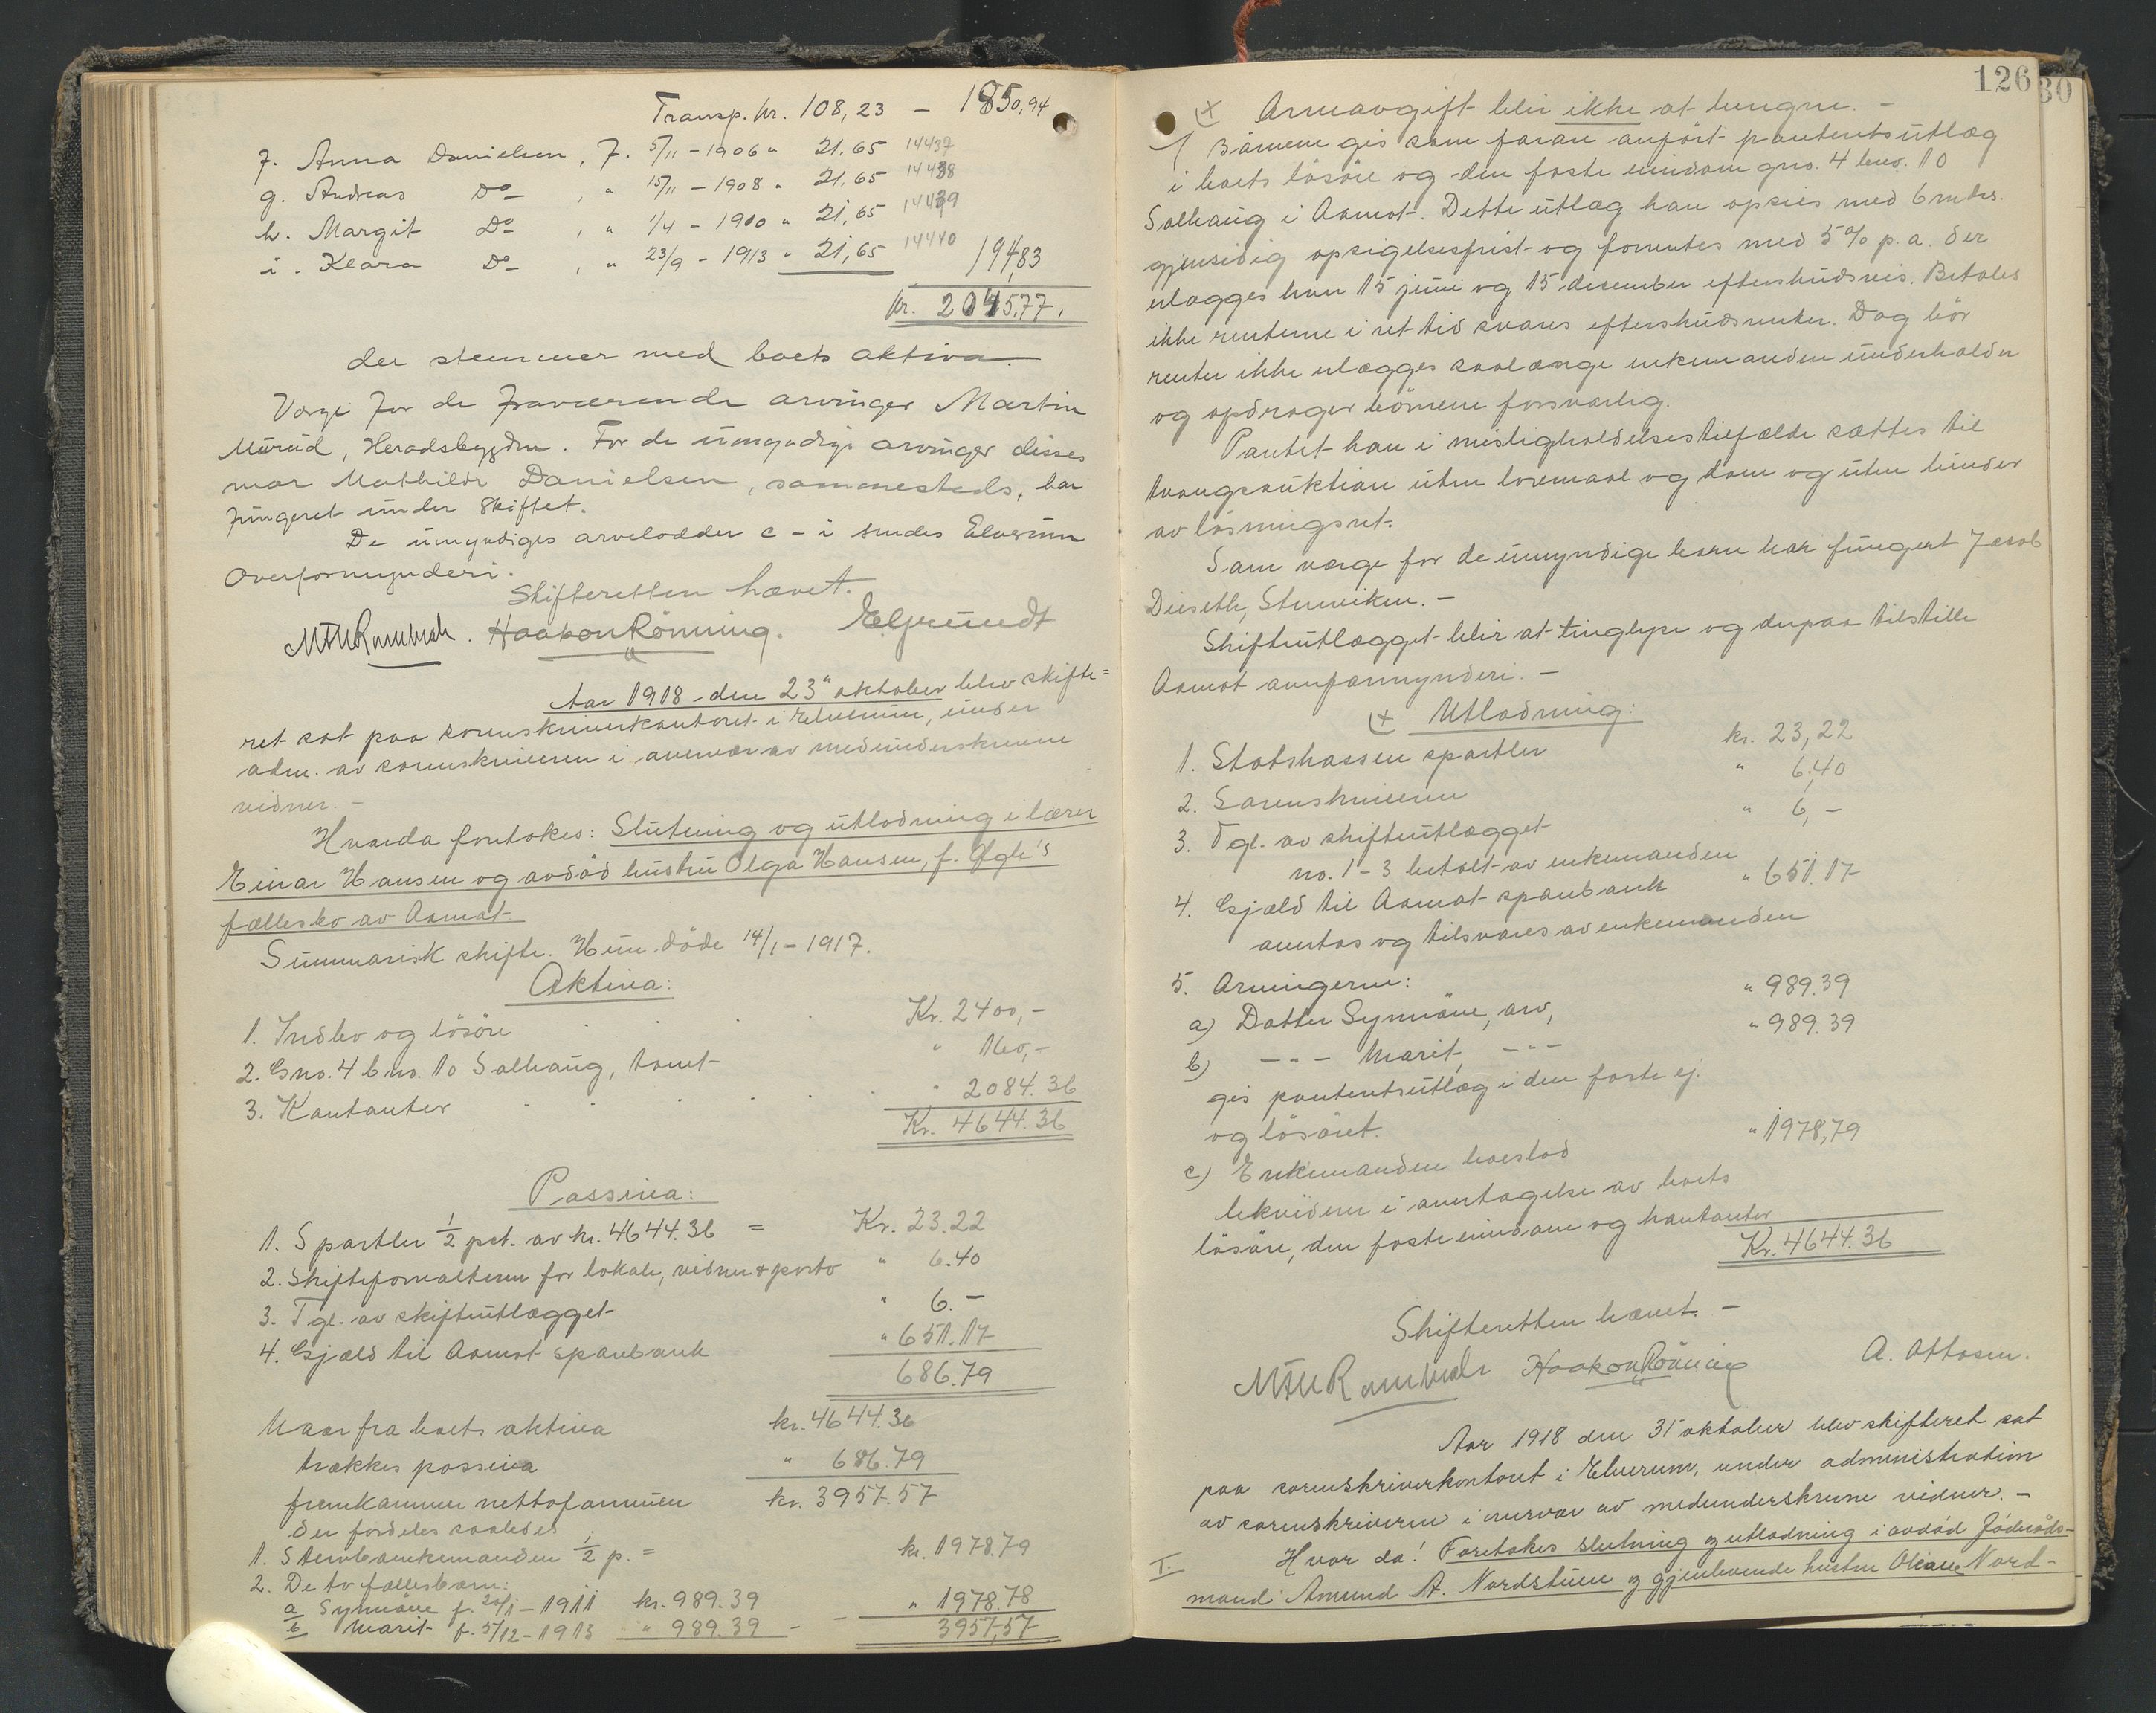 Transp. kr. 108,23 – 1850,94
f. Anna Danielsen, f. 5/11 – 1906 " 21.65 14437
g. Andreas Do – , " 15/11 – 1908 " 21.65 14438
h. Margit Do – , " 1/4 – 1910 " 21,65 14439
i. Klara Do – , " 23/9 – 1913 " 21,65 14440 194,83
kr. 2045,77.
der stemmer med boets aktiva.
Værge for de fraværende arvinger Martin
Murud, Heradsbygden. For de umyndige arvinger disses
mor Mathilde Danielsen, sammesteds, har
fungeret under skiftet.
De umyndiges arvelodder c – i sendes Elverum
Overformynderi.
Skifteretten hævet.
Haakon Rönning. E Grundt
Aar 1918 den 23' oktober blev skifte=
ret sat paa sorenskriverkontoret i Elverum, under
adm. av sorenskriveren i overvær av medunderskrevne
vidner. –
Hvorda foretokes: Slutning og utlodning i lærer
Einar Hansen og avdöd hustru Olga Hansen, f.
fællesbo av Aamot
Summarisk skifte. Hun döde 14/1 – 1917.
Aktiva:
1. Indbo og lösöre Kr. 2400,–
2. Gno. 4 bno. 10 Solhaug, Aamot " 160,–
3. Kontanter " 2084.36
Kr. 4644.36
Passiva:
1. Sportler 1/2 pct. av kr. 4644.36 = Kr. 23.22
2. Skifteforvalteren for lokale, vidner & porto " 6.40
3. Tgl. av skifteutlægget " 6.–
4. Gjæld til Aamot sparebank " 651.17
686.79
Naar fra boets aktiva kr. 4644.36
trækkes passiva " 686.79
fremkommer nettoformuen kr. 3957.57
der fordeles saaledes
1. Stervboenkemanden 1/2 p. = kr. 1978.79
2. De to fællesbarn:
a Synnöve f. 20/1 – 1911 kr. 989.39
b Marit f. 5/12 – 1913 " 989.39 – " 1978.78
3957,57
126
30
(x Arveavgift blir ikke at beregne. –
Barnene gis som foran anfört panteretsutlæg
i boets lösöre og den faste eiendom gno. 4 bno. 10
Solhaug i Aamot. Dette utlæg kan opsies med 6 mdrs.
gjensidig opsigelsesfrist og forrentes med 5 % p.a. der
erlægges hver 15 juni og 15 desember efterskudsvis. Betales
ikke renterne i ret tid svares efterskudsrenter. Dog bör
renter ikke erlægges saalænge enkemanden underholder
og opdrager börnene forsvarlig.
Pantet kan i misligholdelsestilfælde sættes til
tvangsauktion uten lovmaal og dom og uten hinder
av lösningsret.
Som værge for de umyndige barn har fungert Jacob
Diseth, Stenviken. –
Skifteutlægget blir at tinglyse og derpaa tilstille
Aamot overformynderi. –
(x Utlodning:
1. Statskassen sportler kr. 23,22
2. Sorenskriveren " 6,40
3. Tgl. av skifteutlægget " 6,–
no. 1–3 betalt av enkemanden
4. Gjæld til Aamot sparebank " 651.17
overtas og tilsvares av enkemanden
5. Arvingerne:
a) Datter Synnöve, arv, " 989.39
b) – " – Marit, – " – " 989.39
gis panteretsutlæg i den faste ej.
og lösöret.
c) Enkemanden boeslod " 1978,79
bekvider i overtagelse av boets
lösöre, den faste eiendom og kontanter
Kr. 4644.36
Skifteretten hævet. –
Haakon Rönning A. Ottosen.
Aar 1918 den 31 oktober blev skifteret sat
paa sorenskriverkontoret i Elverum, under administration
av sorenskriveren i overvær av medunderskrevne vidner. –
I. Hvor da! Foretokes slutning og utlodning i avdöd
mand Amund A. Nordstuen og gjenlevende hustru Oleane Nord-